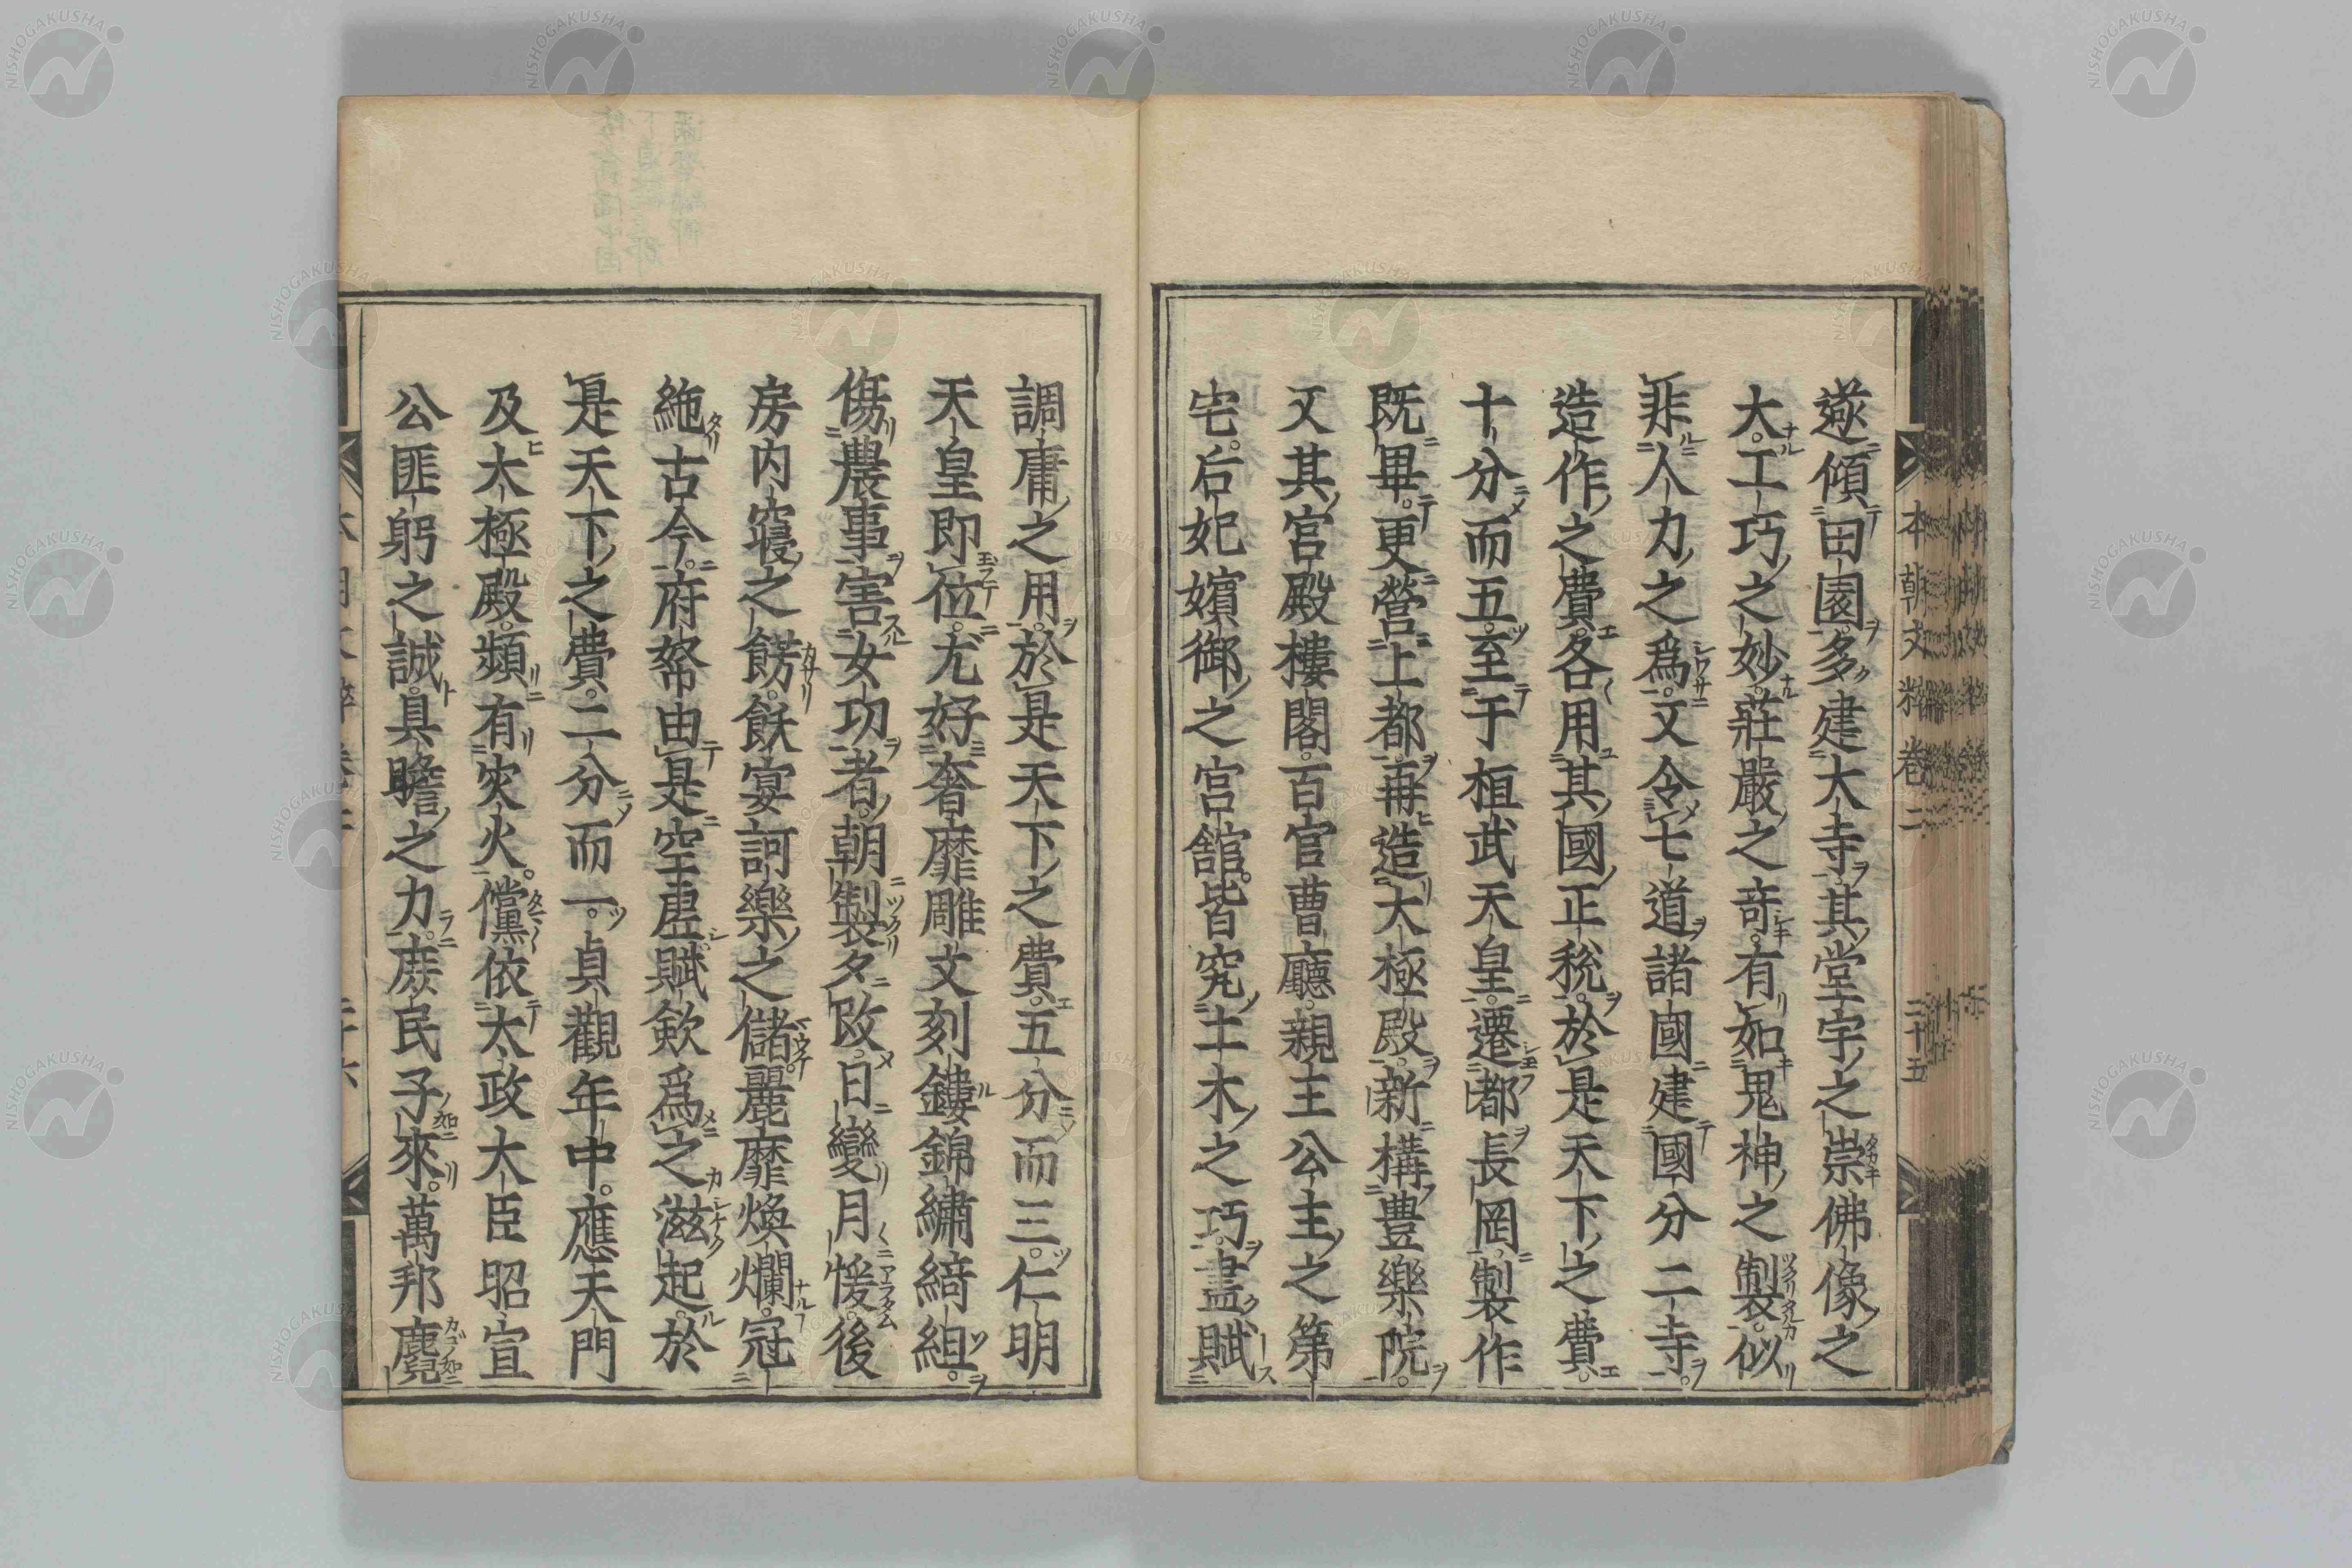 遂傾田園多建大寺其堂宇之崇佛像之
大工巧之妙莊嚴之奇有如鬼神之製似
非人力之爲又令七道諸國建國分二寺
造作之費各用其國正稅於是天下之費
十分而五至于桓武天皇遷都長岡製作
既畢更營上都再造大極殿新構豊樂院
又其宮殿樓閣百官曹廳親王公主之第
宅后妃嬪御之宮舘皆究土木之巧盡賦
調庸之用於是天下之費五分而三仁明
天皇即位尤好奢靡雕文刻鏤錦繡綺組
傷農事害女功者朝製夕改日變月悛後
房内寢之餝飫宴謌樂之儲麗靡煥爛冠
絁古今府帑由是空虛賦斂爲之滋起於
是天下之費二分而一貞觀年中應天門
及大極殿頻有灾火儻依太政大臣昭宣
公匪躬之誠具瞻之力庶民子來萬邦麑
本朝文粹卷二
二十五
NISHOGAKUSHA